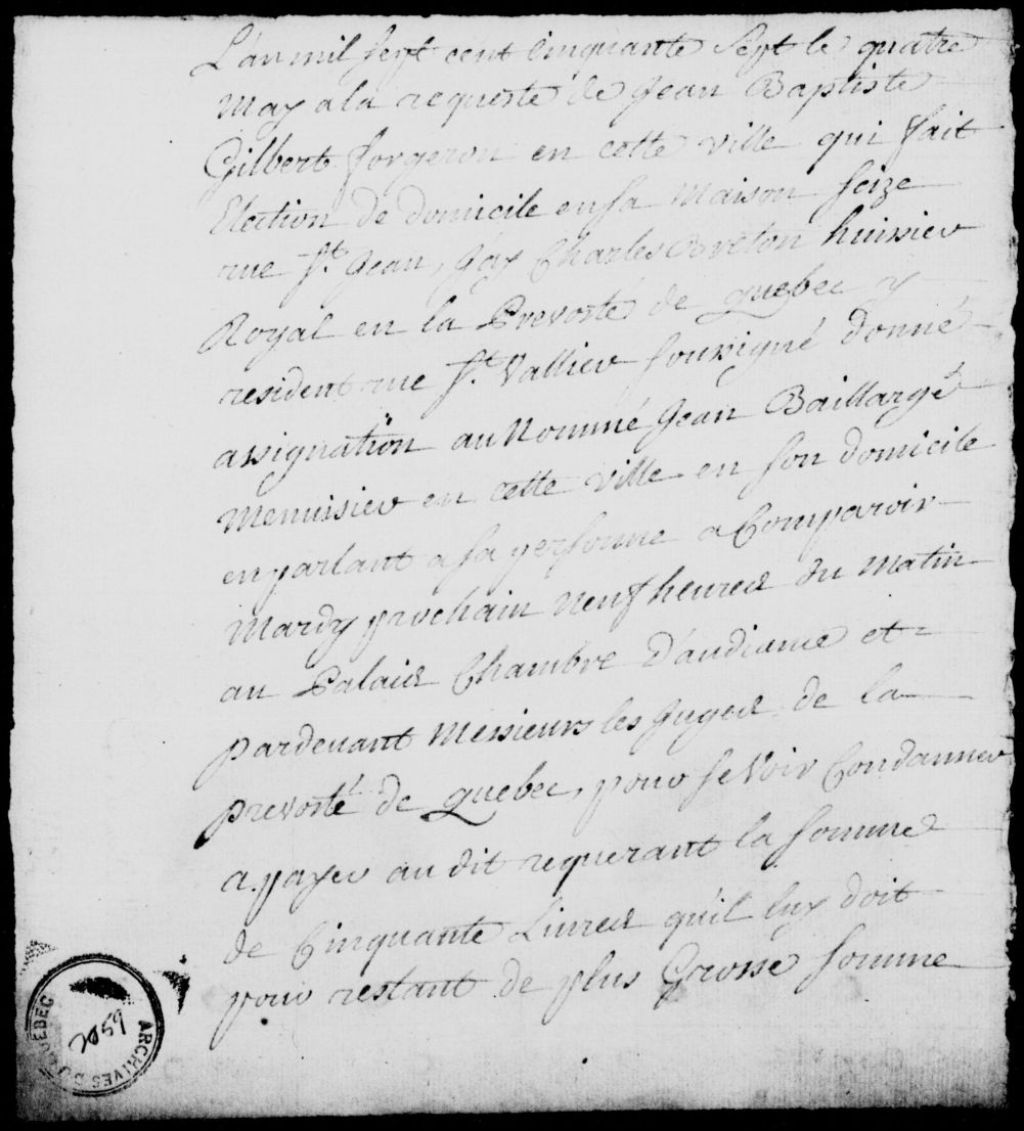 L'an mil sept cent cinquante sept le quatre
May a la requeste de Jean Baptiste
Gilbert forgeron en cette ville qui fait
Election de domicile en sa Maison seize
rue St. Jean, Jay Charles Breton huissier
Royal en la Prevosté de Quebec y
resident rue St. Vallier soussigné donné
assignation au Nommé Jean Baillargé
Menuisier en cette ville en son domicile
en parlant a sa personne a Comparoir
Mardy prochain Neuf heures du Matin
au Palais Chambre D'audiance et
pardevant Messieurs les Juges de la
prevosté de Quebec, pour se Voir Condanner
a payer au dit requerant la somme
de Cinquante Livres qu'il luy doit
pour restant de plus Grosse somme
ARCHIVES DU QUÉBEC
2059